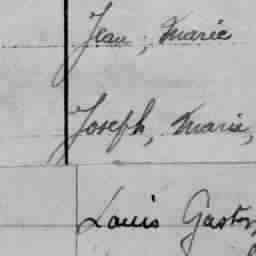 Jean, Marie
Joseph, Marie,
Louis Gaston